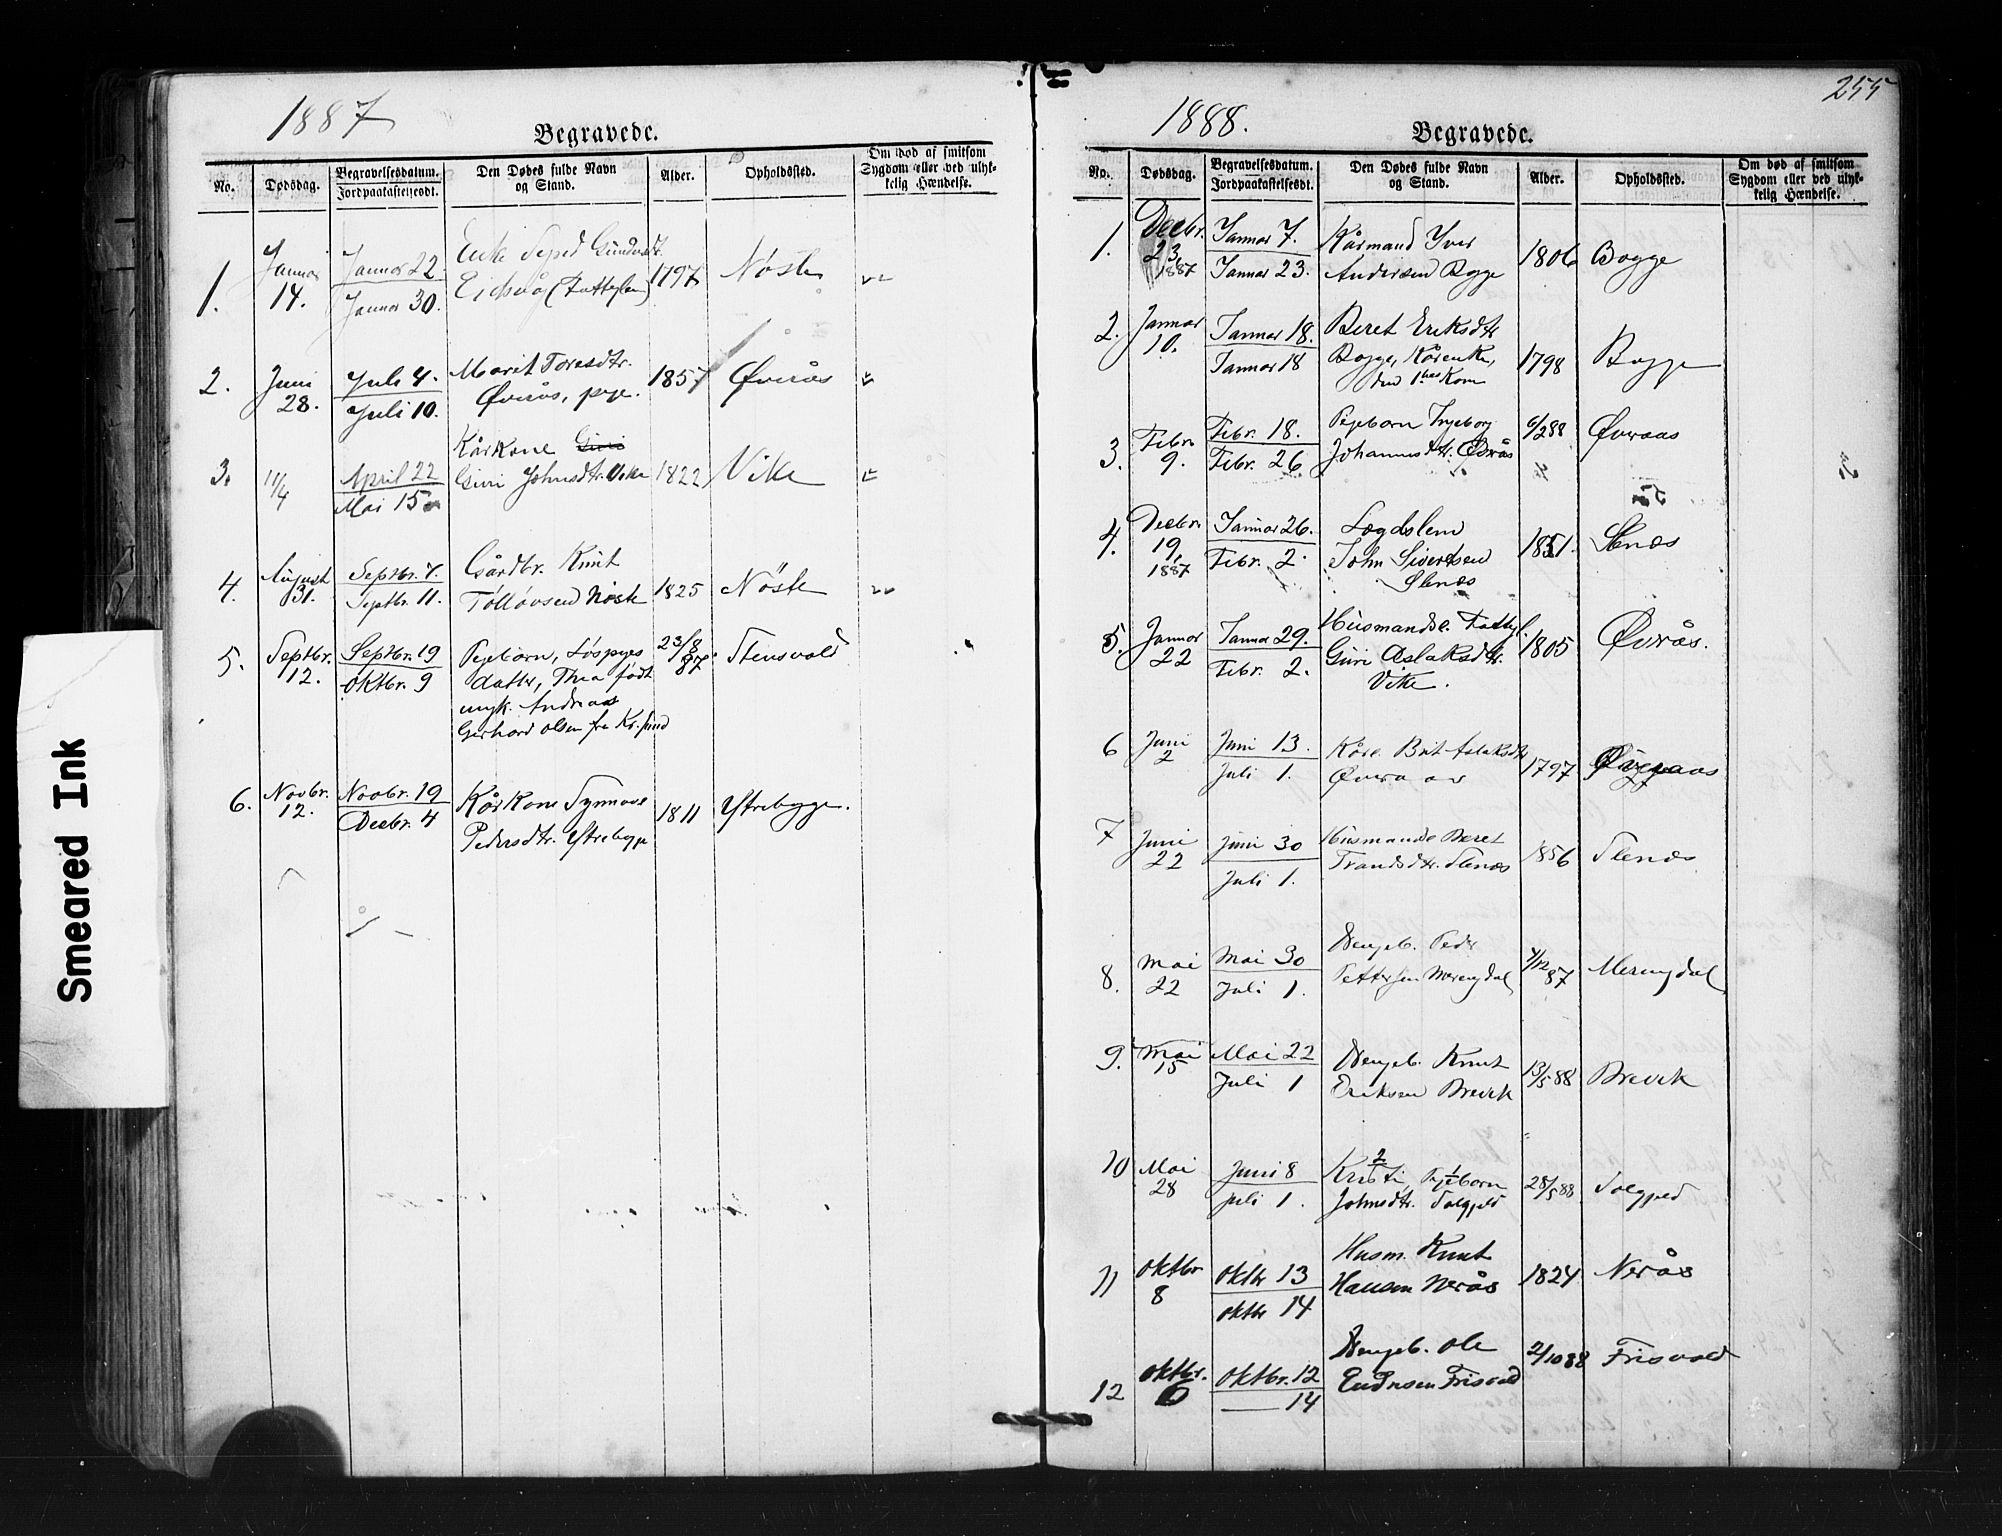 Smeared Ink
1887
Begravede.
No.
Dødsdag.
Begravelsesdatum.
Jordpaakastelsesdt.
Den Dødes fulde Navn
og Stand.
Alder.
Opholdssted.
Om død af smitsom
Sygdom eller ved ulyk-
kelig Hændelse.
1.
Januar
14.
Januar 22
Januar 30.
Enke
(Fattiglem)
1797
Nøste
2.
Juni
28.
Juli 4.
Juli 10.
Marit Toresdtr.
Øverås, pige.
1857
Øverås
3.
11/4
April 22
Mai 15
Kårkone Guri
Guri Johnsdtr. Vike
1822
Vike
4.
August
31.
Septbr. 7.
Septbr. 11.
Gårdbr. Knut
Tølløvsen Nøste
1825
Nøste
5.
Septbr.
12.
Septbr. 19
Oktbr. 9
Pigebarn, Løspiges
datter, Thea født
uægt. Andreas
Gerhard Olsen fra Kr.sund
23/8 87
Stensvold
6.
Novbr.
12.
Novbr. 19
Decbr. 4
Kårkone Synnøve
Pedersdtr. Ytrebygge
1811
Ytrebygge.
255
1888.
Begravede.
No.
Dødsdag.
Begravelsesdatum.
Jordpaakastelsesdt.
Den Dødes fulde Navn
og Stand.
Alder.
Opholdssted.
Om død af smitsom
Sygdom eller ved ulyk-
kelig Hændelse.
1.
Decbr.
23.
1887
Januar 7.
Januar 23.
Kårmand Iver
Andersen Bogge
1806
Bogge
2.
Januar
10.
Januar 18.
Januar 18
Beret Eriksdtr
Bogge, Kårenke,
1798
Bogge
3.
Febr.
9.
Febr. 18.
Febr. 26
Pigebarn Ingeborg
Johannesdtr. Øvrås
6/2 88
Øvraas
4.
Decbr.
19.
1887
Januar 26.
Febr. 2.
Lægdslem
John Sivertsen
Stenæs
1851.
Stenæs
5.
Januar
22
Januar 29.
Febr. 2.
Husmandse. Fattigl.
Guri Aslaksdtr.
Vike.
1805
Øvrås.
6
Juni
2
Juni 13.
Juli 1.
Kåre. Brit Aslaksdtr
Øveraas
1797
Øveraas
7
Juni
22
Juni 30
Juli 1.
Husmandse Beret
Trondsdtr. Stenæs
1856
Stenæs
8.
Mai
22
Mai 30
Juli 1.
Drengeb. Peder
Pettersen Meringdal
7/12 87
Meringdal
9.
Mai
15
Mai 22
Juli 1
Drengeb. Knut
Eriksen Brevik
13/5 88
Brevik
10
Mai
28
Juni 8
Juli 1.
2
1
Kristi, Pigebarn
Johnsdtr. Solgjeld
28/5 88.
Solgjeld
11
Oktbr
8
Oktbr 13
Oktbr 14
Husm. Knut
Hansen Nerås
1824
Nerås
12
Oktbr.
6
Oktbr. 12
— 14
Drengeb. Ole
Endresen Frisvold
2/10 88
Frisvold